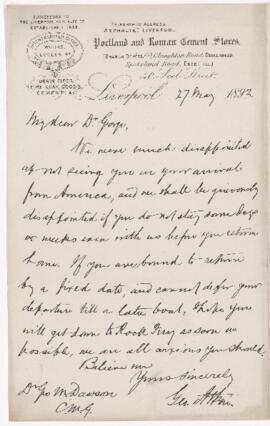 ESTABLISHED
TELEGRAPHIC ADDRESS
ASPHALTE, LIVERPOOL.
Portland and Roman Cement Stores,
Liverpool 27 May 1892
My dear Dr George
We were much disappointed
at not seeing you on your arrival
from America, and we shall be grievously
disappointed if you do not stay some days
or weeks even with us before you return
home. If you are bound to return
by a fixed date, and cannot defer your
departure till a later boat, I hope you
will get down to Rock Ferry as soon as
possible, we are all anxious you should.
Believe me
Yours Sincerely
Geo
Dr Geo M Dawson
C.M.G.